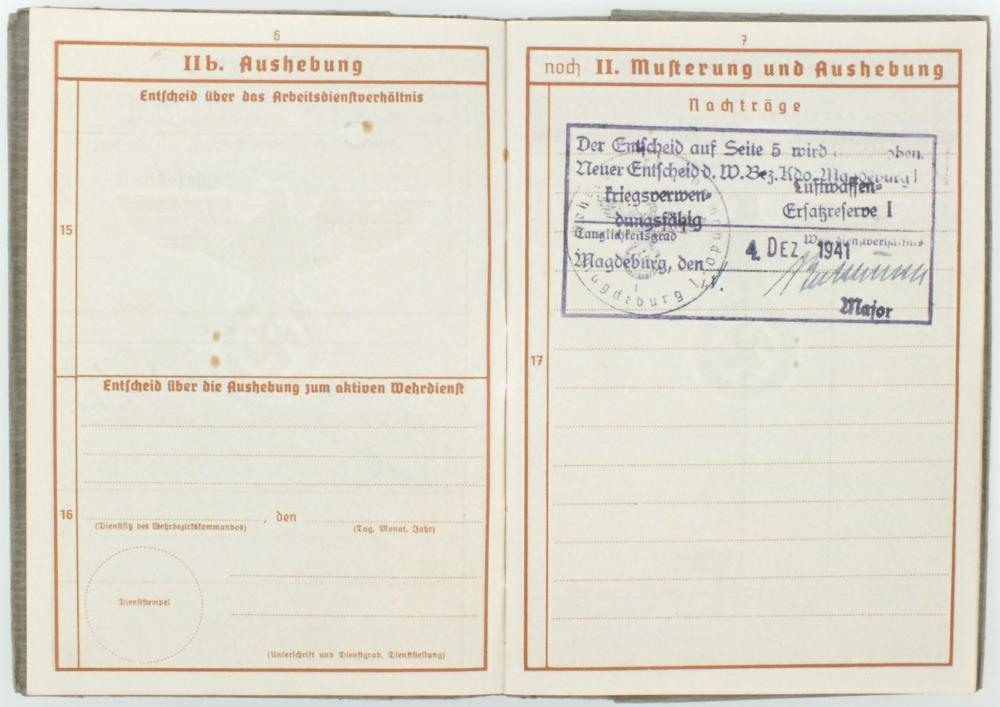 6
IIb. Aushebung
Entscheid über das Arbeitsdienstverhältnis
15
Entscheid über die Aushebung zum aktiven Wehrdienst
16
, den
(Dienstsitz des Wehrbezirkskommandos)
(Tag, Monat, Jahr)
Dienststempel
(Unterschrift und Dienstgrad, Dienststellung)
7
noch II. Musterung und Aushebung
Nachträge
Der Entscheid auf Seite 5 wird
Neuer Entscheid d. W. Bez. Kdo. Magdeburg I
kriegsverwen- Luftwaffen=
dungsfähig Ersatzreserve I
Tauglichkeitsgrad Wehrdienstverhältnis
Magdeburg, den 4. DEZ. 1941
Major
Magdeburg I
17